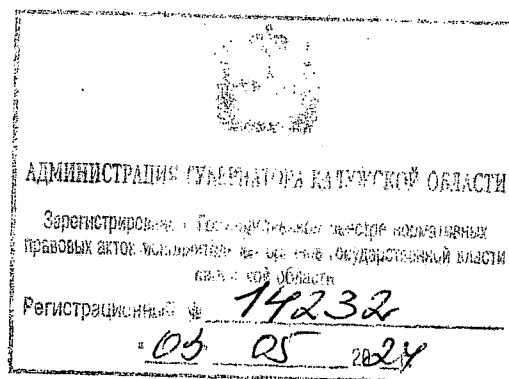 АДМИНИСТРАЦИЯ ГУБЕРНАТОРА КАЛУЖСКОЙ ОБЛАСТИ
Зарегистрировано в Государственном реестре нормативных
правовых актов исполнительных органов государственной власти
Калужской области
Регистрационный № 14232
05 2024